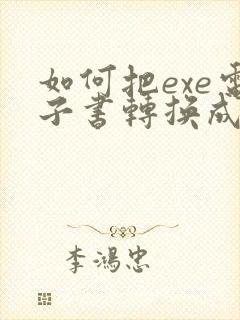 如何把exe電
子書轉換成
李鴻忠